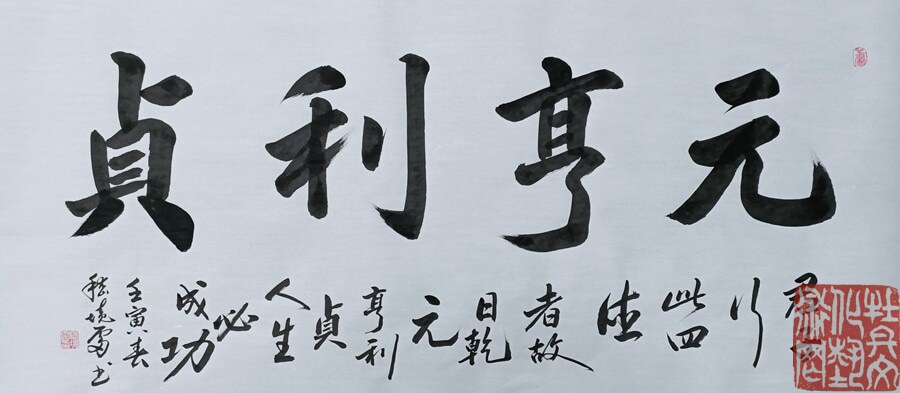 元亨利貞
君子
行
此四
德
者故
曰乾
元
亨利
貞
人生
必
成功
壬寅春